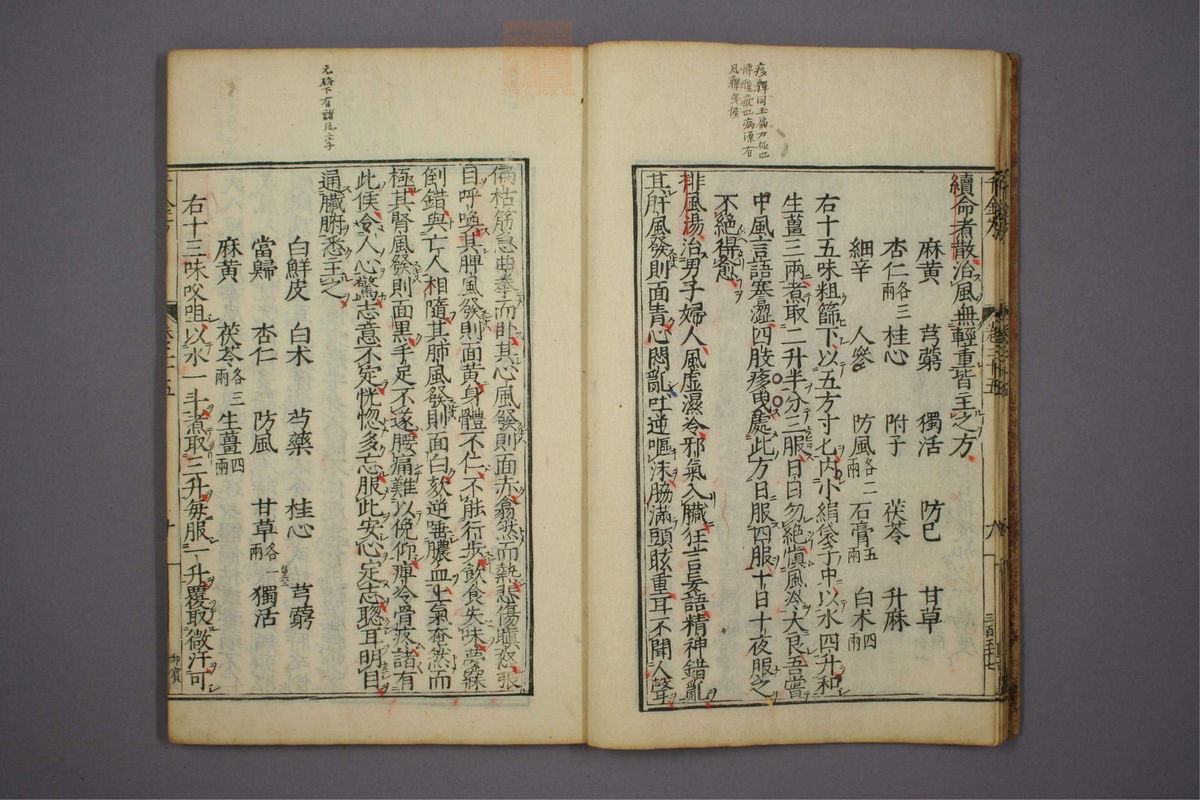 續命煮散治風無輕重皆主之方
麻黄 芎藭 獨活 防已 甘草
杏仁各三兩 桂心 附子 茯苓 升麻
細辛 人參 防風各二兩 石膏五兩 白术四兩
右十五味粗篩下以五方寸匕内小絹袋子中以水四升和
生薑三兩煮取二升半分三服日日勿絶慎風冷大良吾嘗
中風言語蹇澀四肢疼曳處此方日服四服十日十夜服之
不絶得愈
排風湯治男子婦人風虚濕冷邪氣入臟狂言妄語精神錯亂
其肝風發則面青心悶亂吐逆嘔沫脇滿頭眩重耳不聞人聲
偏枯筋急曲拳而卧其心風發則面赤翕然而熱悲傷嗔怒張
目呼喚其脾風發則面黄身體不仁不能行步飲食失味夢寐
倒錯與亡人相隨其肺風發則面白欬逆唾膿血上氣奄然而
極其腎風發則面黑手足不遂腰痛難以俛仰痺冷骨疼諸有
此候令人心驚志意不定恍惚多忘服此安心定志聰耳明目
通臟腑悉主之
白鮮皮 白术 芍藥 桂心 芎藭
當歸 杏仁 防風 甘草各一兩 獨活
麻黄 茯苓各三兩 生薑四兩
右十三味㕮咀以水一斗煮取三升每服一升覆取微汗可